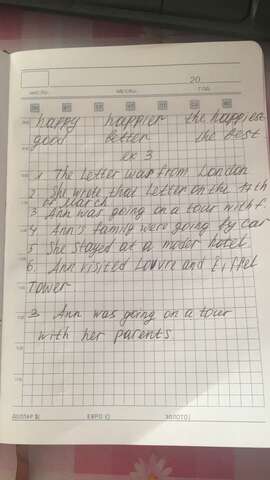 20
МЕСЯЦ
ГОД
happy happier the happiest
good better the best
ex 3
1 The Letter was from London
2 She wrote that Letter on the 11th
of March
3 Ann was going on a tour with f.
4 Ann's family were going by car
5 She stayed at a moder hotel
6. Ann visited Louvre and Eiffel
Tower
3. Ann was going on a tour
with her parents
ДОЛЛАР $ ЕВРО ЗОЛОТО